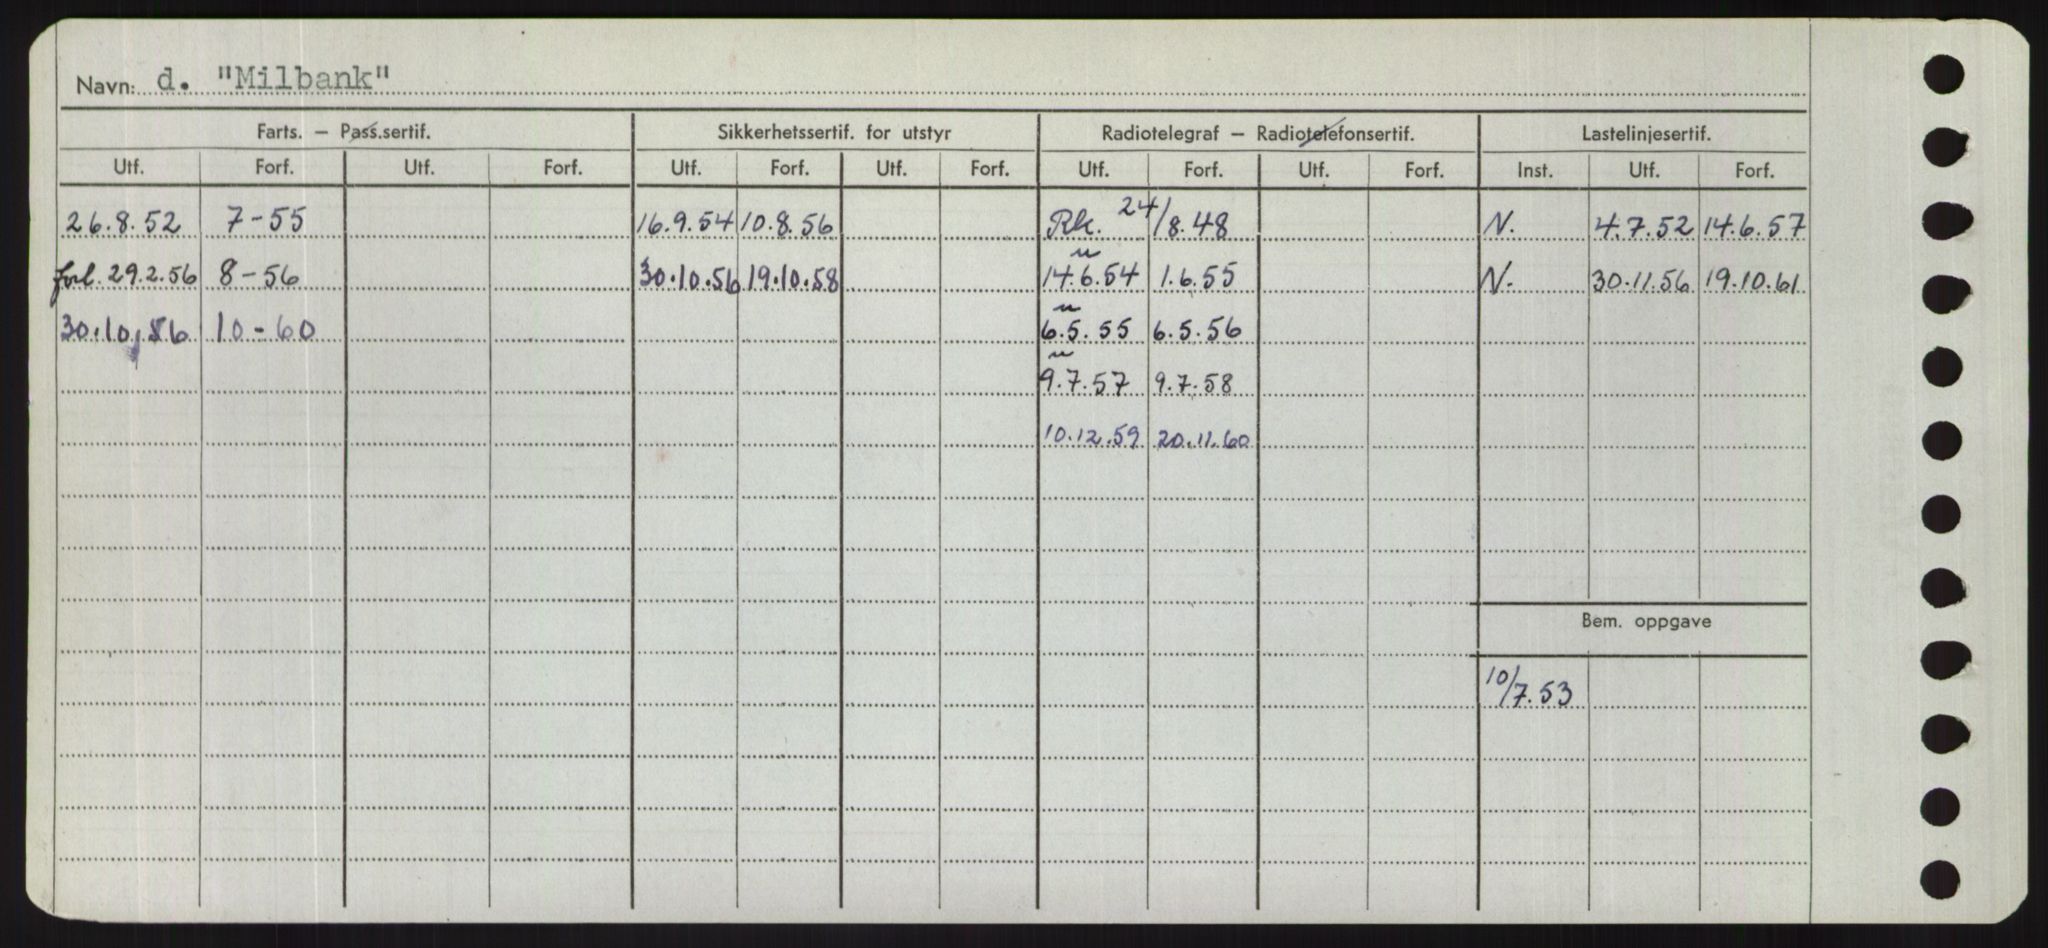 Navn: d. "Milbank"
Farts. – Pass.sertif. Sikkerhetssertif. for utstyr Radiotelegraf – Radiotelefonsertif. Lastelinjesertif.
Utf. Forf. Utf. Forf. Utf. Forf. Utf. Forf. Utf. Forf. Utf. Forf. Inst. Utf. Forf.
26.8.52 7-55 16.9.54 10.8.56 Rk. 24/8.48 N. 4.7.52 14.6.57
forl. 29.2.56 8-56 30.10.56 19.10.58 14.6.54 1.6.55 N. 30.11.56 19.10.61
30.10.56 10-60 6.5.55 6.5.56
9.7.57 9.7.58
10.12.59 20.11.60
Bem. oppgave
10/7.53